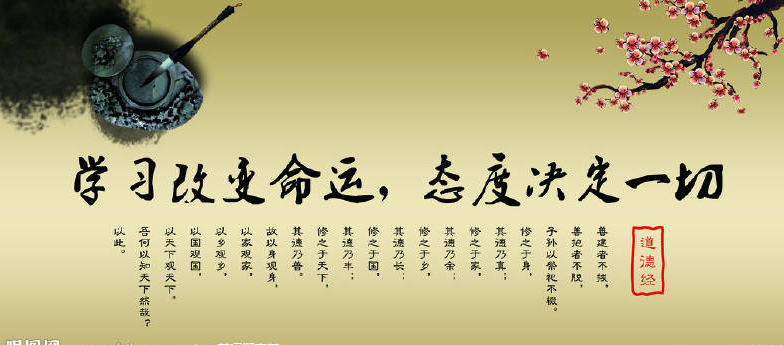 学习改变命运，态度决定一切
道德经
善建者不拔，
善抱者不脱，
子孙以祭祀不辍。
修之于身，
其德乃真；
修之于家，
其德乃余；
修之于乡，
其德乃长；
修之于国，
其德乃丰；
修之于天下，
其德乃普。
故以身观身，
以家观家，
以乡观乡，
以国观国，
以天下观天下。
吾何以知天下然哉？
以此。